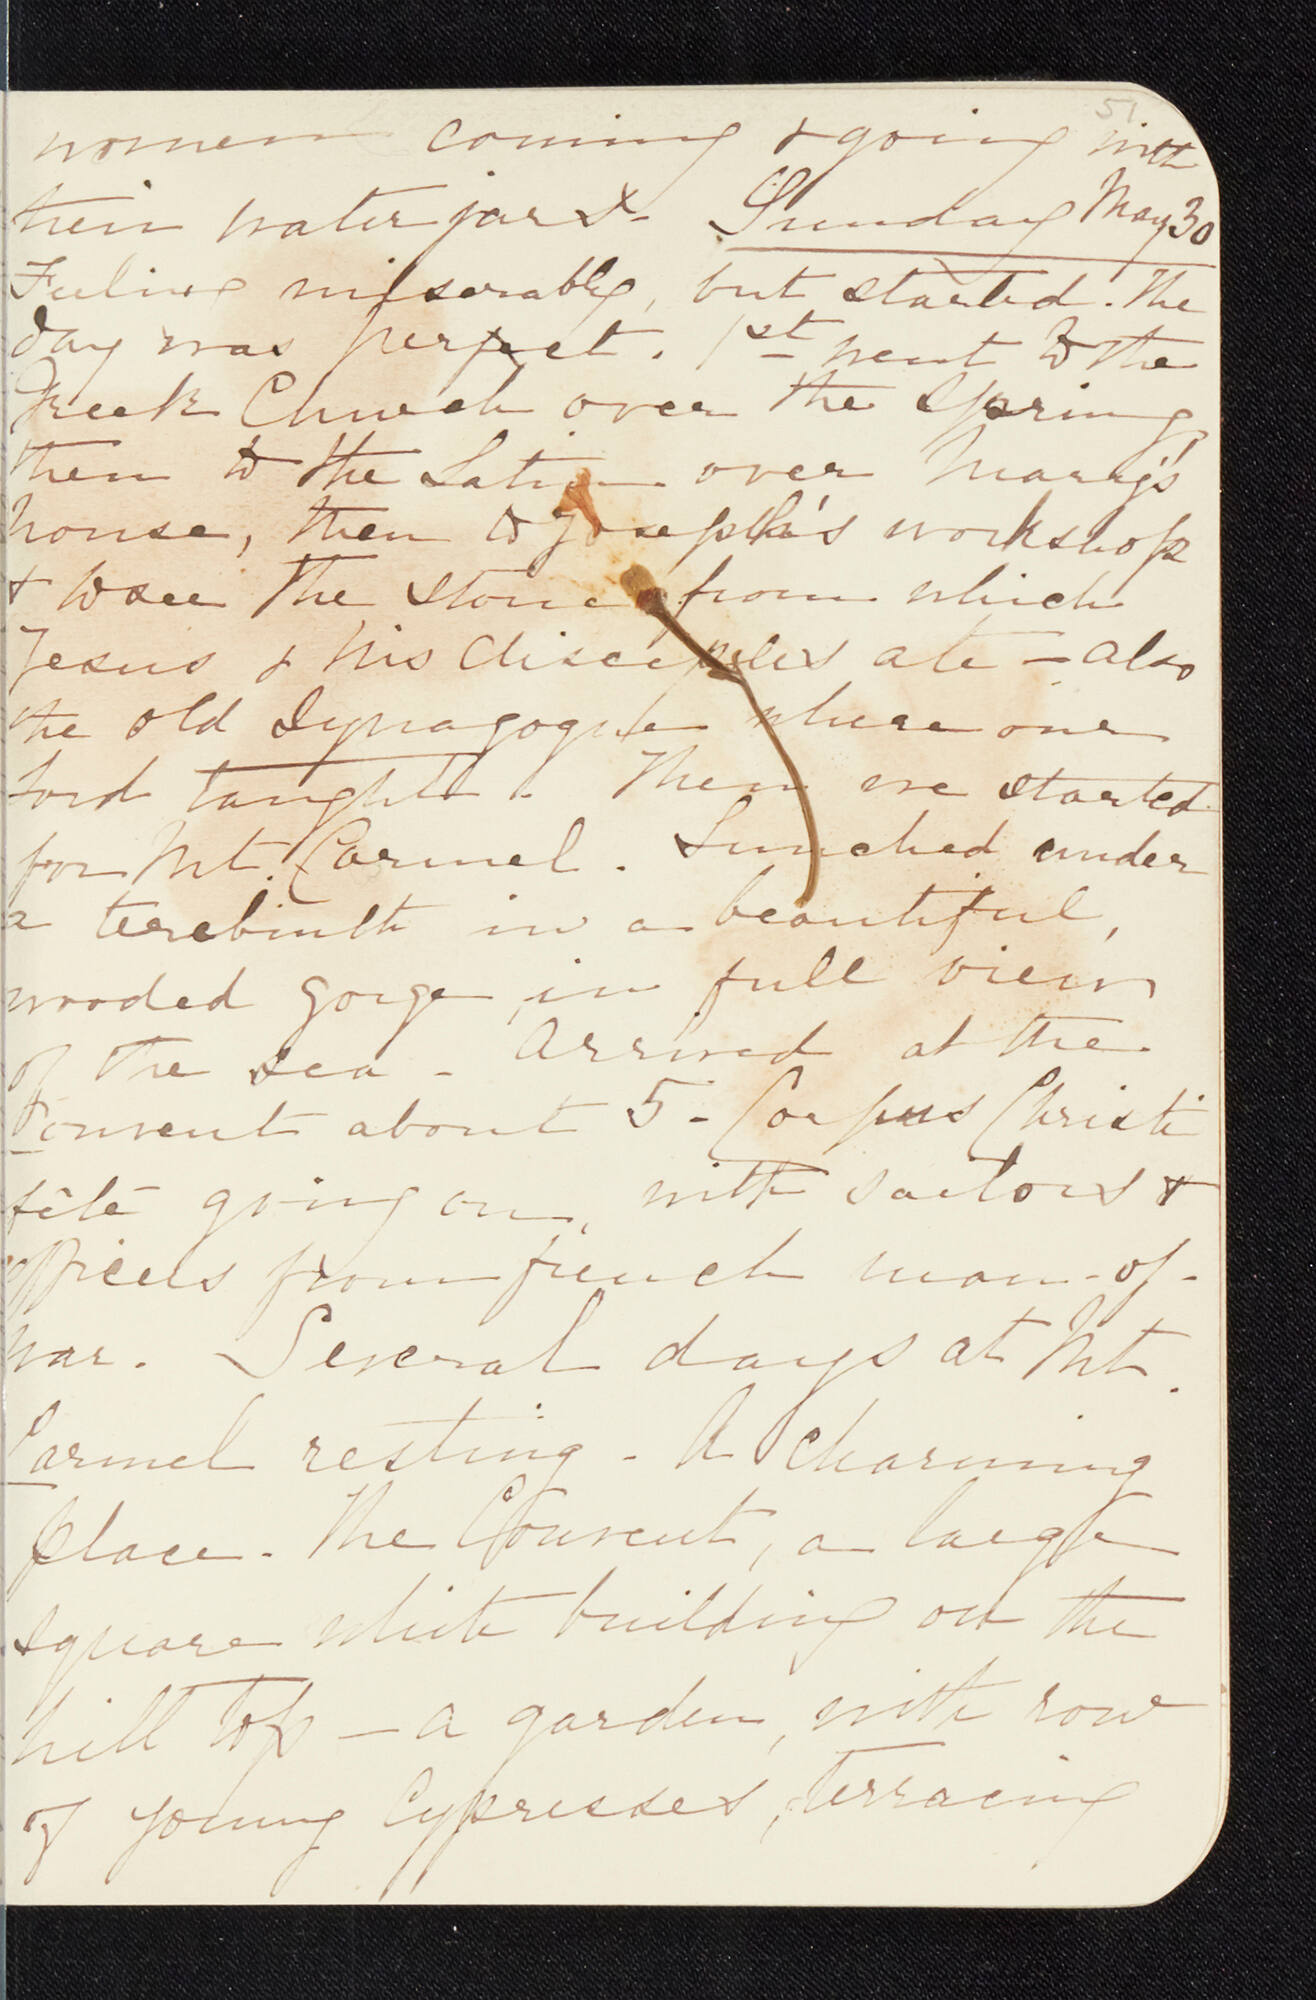 51
women coming & going with
their water jars &- Sunday May 30
Feeling miserably, but started. The
day was perfect. 1st went to the
Greek Church over the Spring,
then to the Latin over Mary's
house, then to Joseph's workshop
& to see the stone from which
Jesus & his disciples ate - also
the old Synagogue where our
Lord taught. Then we started
for Mt. Carmel. Lunched under
a terebinth in a beautiful,
wooded gorge, in full view
of the sea - Arrived at the
Convent about 5 - Corpus Christi
fête going on, with sailors &
officers from french man-of-
war. Several days at Mt.
Carmel resting - A charming
place. The Convent, a large
square white building on the
hill top - a garden, with row
of young cypresses, terracing